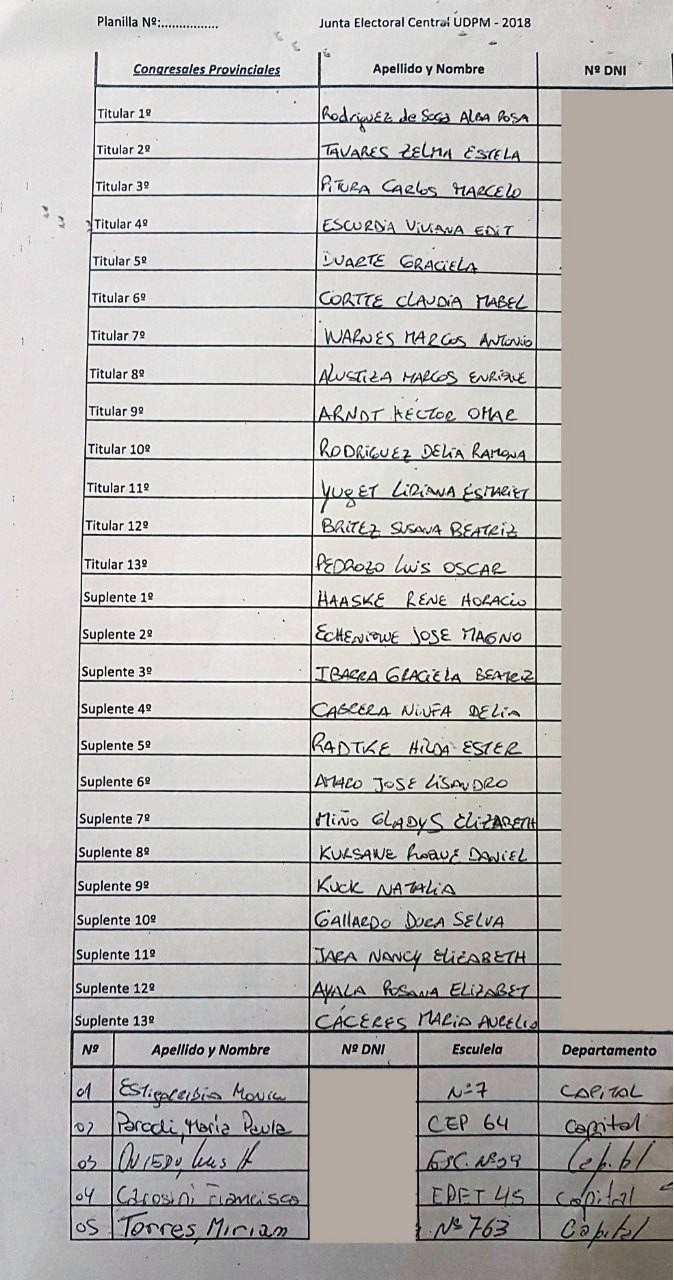 Planilla Nº:................ Junta Electoral Central UDPM - 2018
Congresales Provinciales Apellido y Nombre Nº DNI
Titular 1º Rodriguez de Sosa ALBA ROSA
Titular 2º TAVARES ZELMA ESTELA
Titular 3º PITURA CARLOS MARCELO
Titular 4º ESCURDIA VIVIANA EDIT
Titular 5º DUARTE GRACIELA
Titular 6º CORTTE CLAUDIA MABEL
Titular 7º WARNES MARCOS ANTONIO
Titular 8º ALUSTIZA MARCOS ENRIQUE
Titular 9º ARNDT HECTOR OMAR
Titular 10º RODRIGUEZ DELIA RAMONA
Titular 11º YUGET LIRIANA ESMARIET
Titular 12º BRITEZ SUSANA BEATRIZ
Titular 13º PEDROZO LUIS OSCAR
Suplente 1º HAASKE RENE HORACIO
Suplente 2º ECHENIQUE JOSE MAGNO
Suplente 3º IBARRA GRACIELA BEATRIZ
Suplente 4º CABRERA NINFA DELIA
Suplente 5º RADTKE HILDA ESTER
Suplente 6º AMARO JOSE LISANDRO
Suplente 7º MIÑO GLADYS ELIZABETH
Suplente 8º KURSAWE ROQUE DANIEL
Suplente 9º KUCK NATALIA
Suplente 10º GALLARDO DORA SELVA
Suplente 11º JARA NANCY ELIZABETH
Suplente 12º AYALA ROSANA ELIZABET
Suplente 13º CÁCERES MARIA AURELIO
Nº Apellido y Nombre Nº DNI Esculela Departamento
01 Estigarribia Monica Nº7 CAPITAL
02 Parodi, Maria Paula CEP 64 Capital
03 OVIEDO, Luis H ESC. Nº Capital
04 Francisco EPET 45 Capital
05 Torres, Miriam Nº 763 Capital